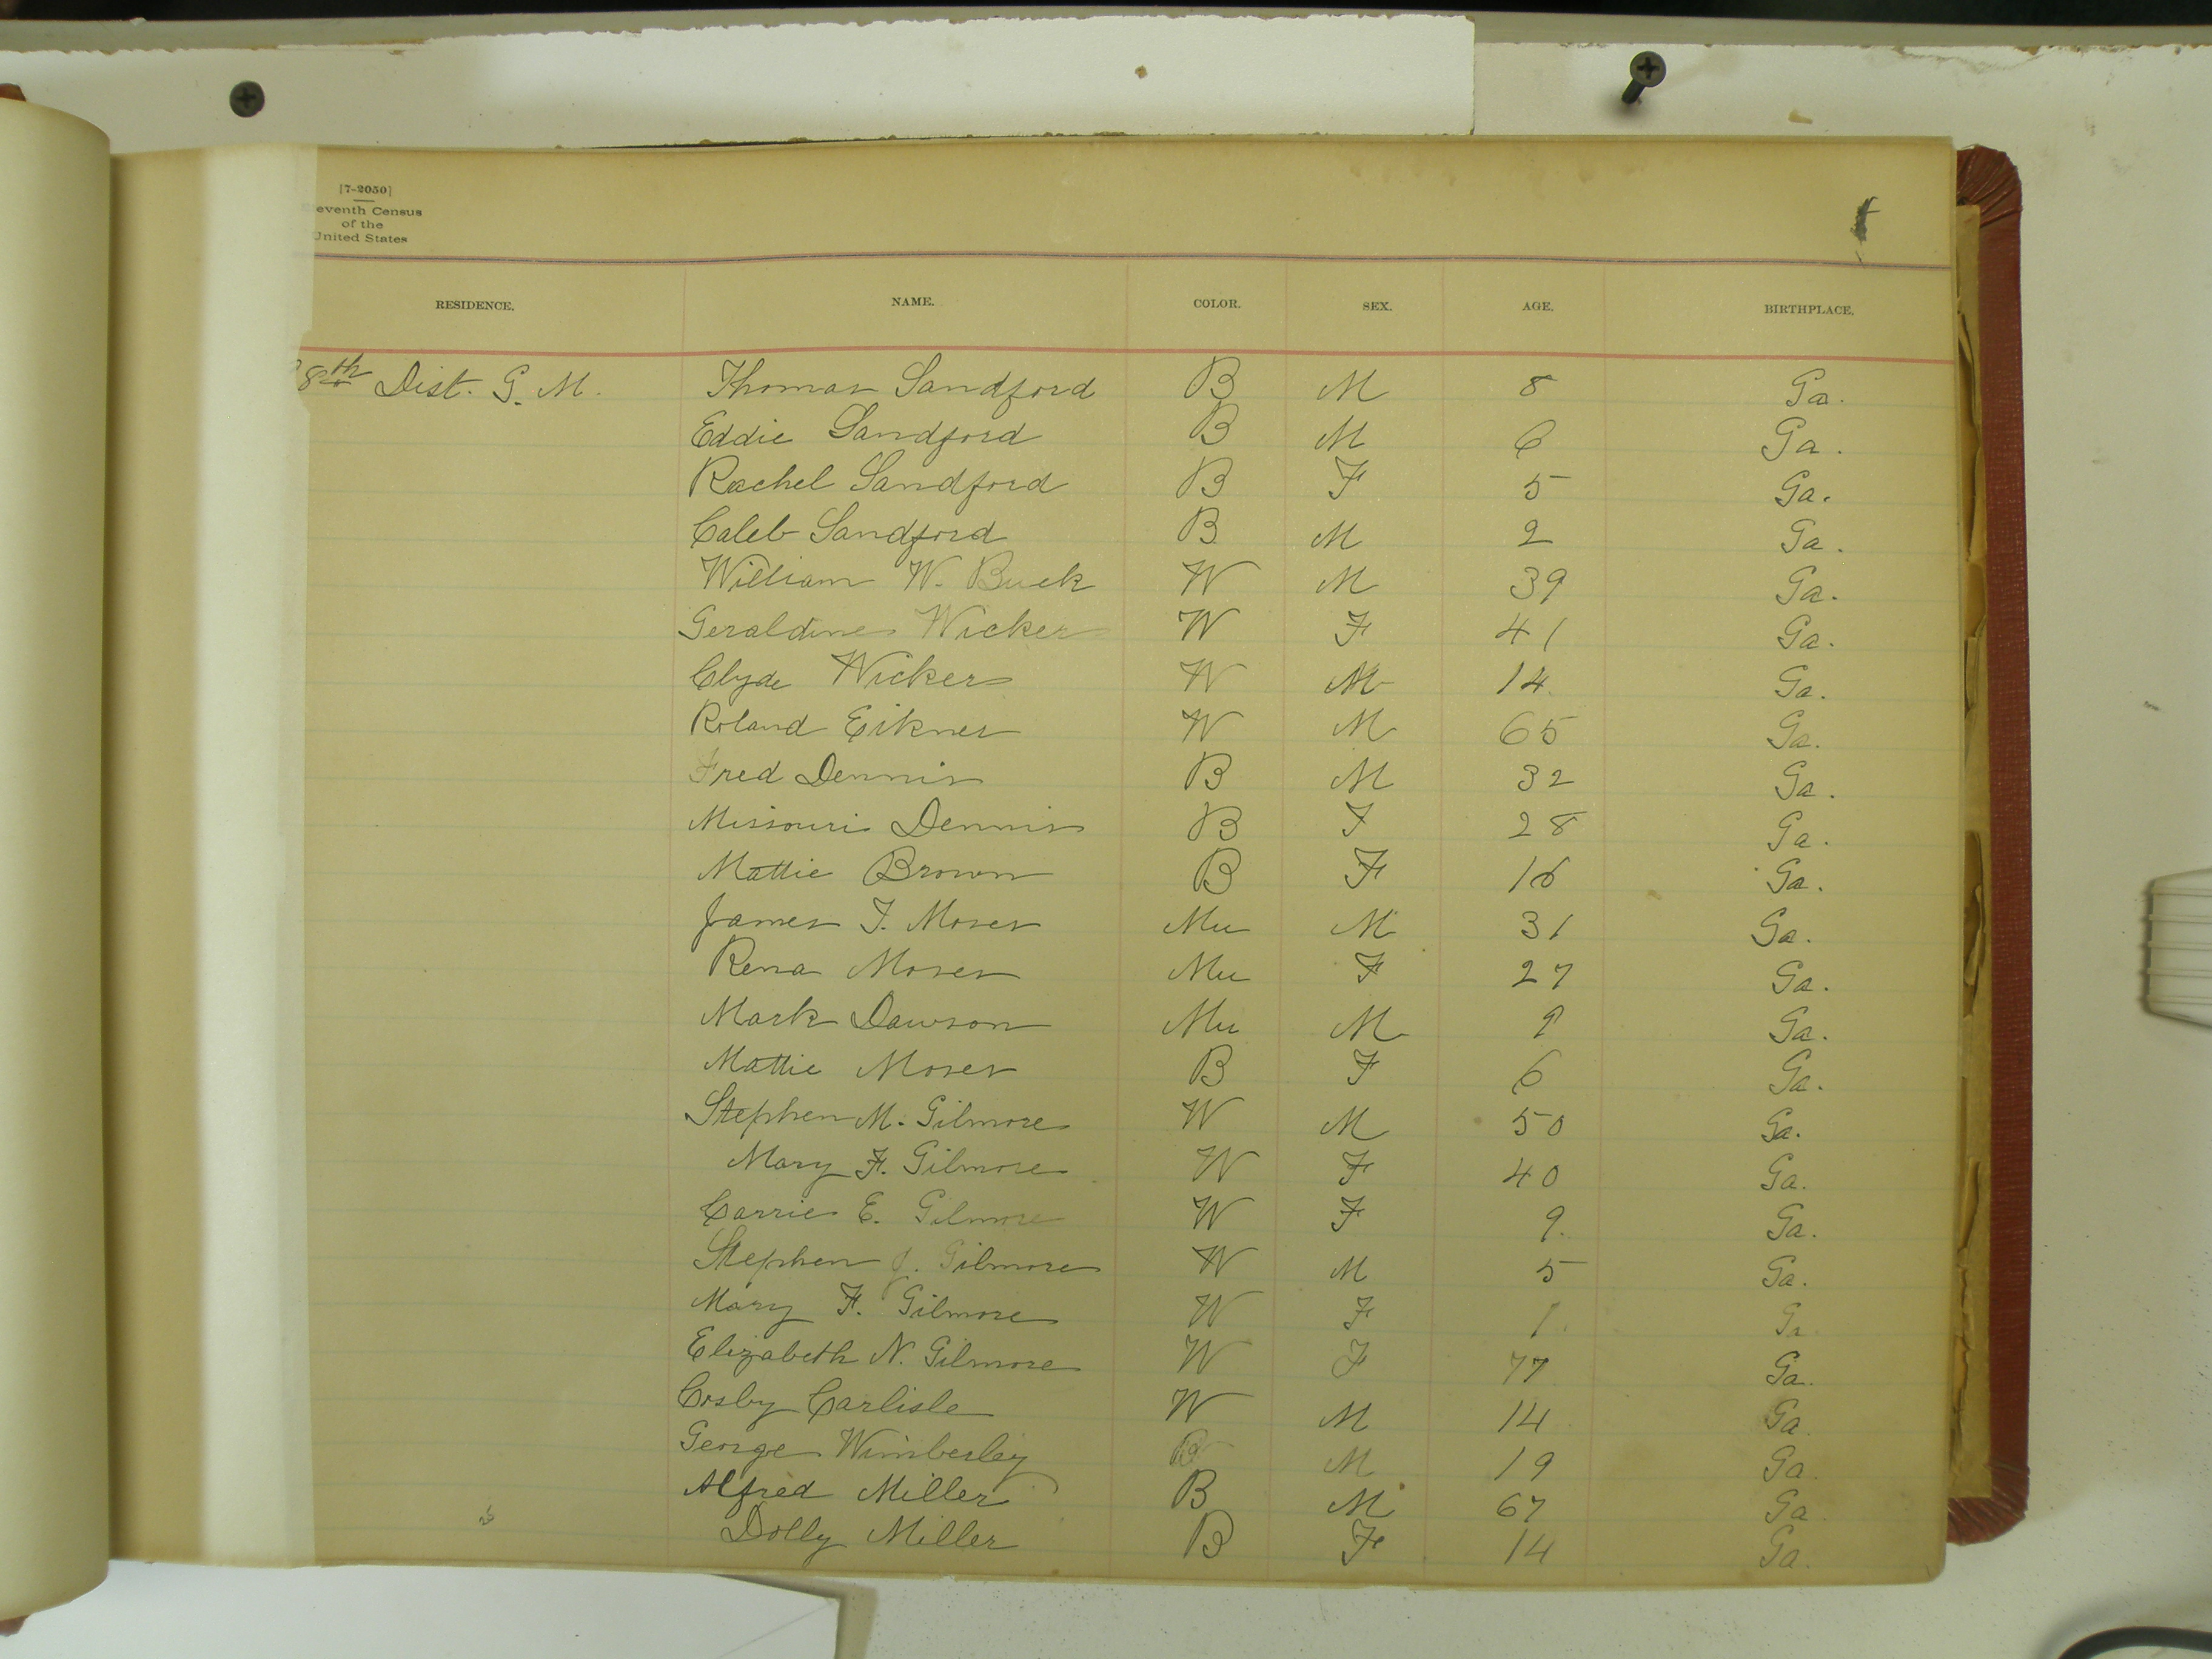 [7-2050]
eventh Census
of the
United States
RESIDENCE. NAME. COLOR. SEX. AGE. BIRTHPLACE.
8th Dist. G. M. Thomas Sandford B M 8 Ga.
Eddie Sandford B M 6 Ga.
Rachel Sandford B F 5 Ga.
Caleb Sandford B M 2 Ga.
William W. Buck W M 39 Ga.
Geraldine Wicker W F 41 Ga.
Clyde Wicker W M 14 Ga.
Roland Eikner W M 65 Ga.
Fred Dennis B M 32 Ga.
Missouri Dennis B F 28 Ga.
Mattie Brown B F 16 Ga.
James T. Moses Mu M 31 Ga.
Rena Moses Mu F 27 Ga.
Mark Dawson Mu M 9 Ga.
Mattie Moses B F 6 Ga.
Stephen M. Gilmore W M 50 Ga.
Mary F. Gilmore W F 40 Ga.
Carrie E. Gilmore W F 9. Ga.
Stephen J. Gilmore W M 5 Ga.
Mary F. Gilmore W F 1 Ga
Elizabeth N. Gilmore W F 77 Ga.
Cosby Carlisle W M 14 Ga
George Wimberley B M 19 Ga.
Alfred Miller B M 67 Ga
Dolly Miller B F 14 Ga.